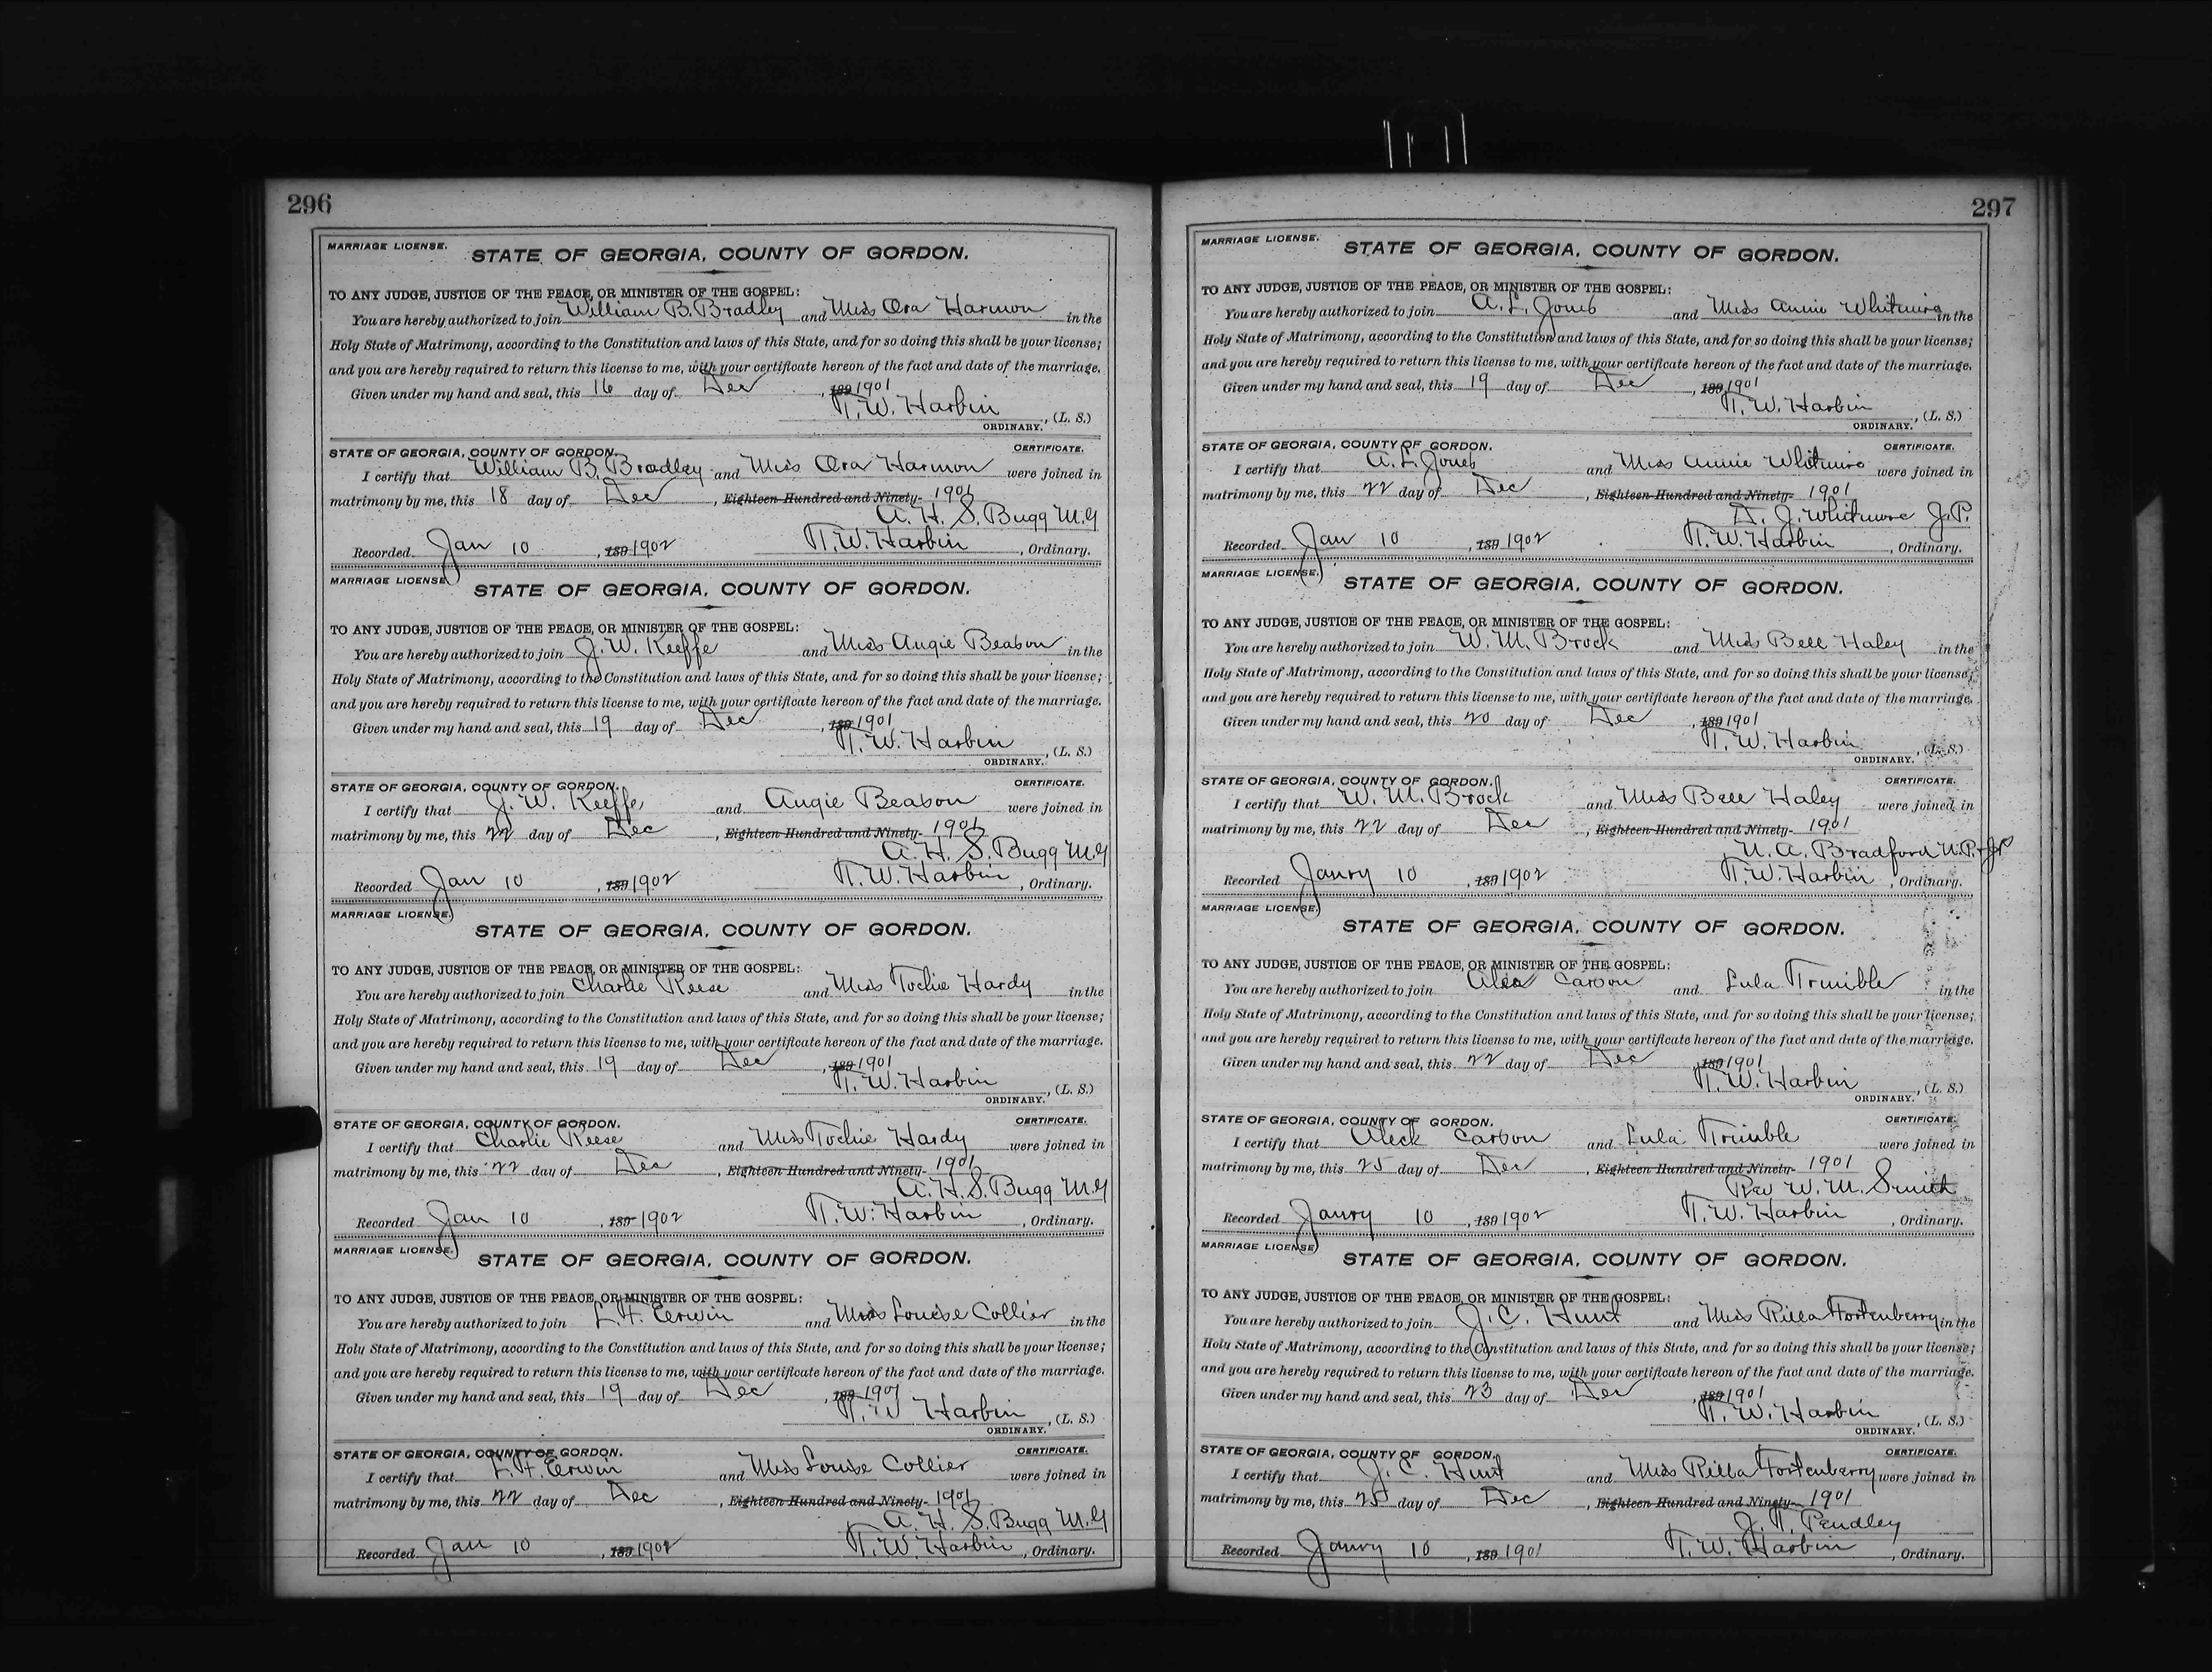 296
MARRIAGE LICENSE.
STATE OF GEORGIA, COUNTY OF GORDON.
TO ANY JUDGE, JUSTICE OF THE PEACE, OR MINISTER OF THE GOSPEL:
You are hereby authorized to join William B. Bradley and Miss Ora Harmon in the
Holy State of Matrimony, according to the Constitution and laws of this State, and for so doing this shall be your license;
and you are hereby required to return this license to me, with your certificate hereon of the fact and date of the marriage.
Given under my hand and seal, this 16 day of Dec, 189 1901
T. W. Harbin, (L. S.)
ORDINARY.
STATE OF GEORGIA, COUNTY OF GORDON. CERTIFICATE.
I certify that William B. Bradley and Miss Ora Harmon were joined in
matrimony by me, this 18 day of Dec, Eighteen Hundred and Ninety- 1901
A. H. S. Bugg M.G
Recorded Jan 10, 189 1902 T. W. Harbin, Ordinary.
MARRIAGE LICENSE.
STATE OF GEORGIA, COUNTY OF GORDON.
TO ANY JUDGE, JUSTICE OF THE PEACE, OR MINISTER OF THE GOSPEL:
You are hereby authorized to join J. W. Keeffe and Miss Augie Beason in the
Holy State of Matrimony, according to the Constitution and laws of this State, and for so doing this shall be your license;
and you are hereby required to return this license to me, with your certificate hereon of the fact and date of the marriage.
Given under my hand and seal, this 19 day of Dec, 189 1901
T. W. Harbin, (L. S.)
ORDINARY.
STATE OF GEORGIA, COUNTY OF GORDON. CERTIFICATE.
I certify that J. W. Keeffe and Augie Beason were joined in
matrimony by me, this 22 day of Dec, Eighteen Hundred and Ninety- 1901
A. H. S. Bugg M.G
Recorded Jan 10, 189 1902 T. W. Harbin, Ordinary.
MARRIAGE LICENSE.
STATE OF GEORGIA, COUNTY OF GORDON.
TO ANY JUDGE, JUSTICE OF THE PEACE, OR MINISTER OF THE GOSPEL:
You are hereby authorized to join Charlie Reese and Miss Tochie Hardy in the
Holy State of Matrimony, according to the Constitution and laws of this State, and for so doing this shall be your license;
and you are hereby required to return this license to me, with your certificate hereon of the fact and date of the marriage.
Given under my hand and seal, this 19 day of Dec, 189 1901
T. W. Harbin, (L. S.)
ORDINARY.
STATE OF GEORGIA, COUNTY OF GORDON. CERTIFICATE.
I certify that Charlie Reese and Miss Tochie Hardy were joined in
matrimony by me, this 22 day of Dec, Eighteen Hundred and Ninety- 1901
A. H. S. Bugg M.G
Recorded Jan 10, 189 1902 T. W. Harbin, Ordinary.
MARRIAGE LICENSE.
STATE OF GEORGIA, COUNTY OF GORDON.
TO ANY JUDGE, JUSTICE OF THE PEACE, OR MINISTER OF THE GOSPEL:
You are hereby authorized to join L. F. Erwin and Miss Louise Collier in the
Holy State of Matrimony, according to the Constitution and laws of this State, and for so doing this shall be your license;
and you are hereby required to return this license to me, with your certificate hereon of the fact and date of the marriage.
Given under my hand and seal, this 19 day of Dec, 189 1901
T. W Harbin, (L. S.)
ORDINARY.
STATE OF GEORGIA, COUNTY OF GORDON. CERTIFICATE.
I certify that L. F. Erwin and Miss Louise Collier were joined in
matrimony by me, this 22 day of Dec, Eighteen Hundred and Ninety- 1901
A. H. S. Bugg M.G
Recorded Jan 10, 189 1902 T. W. Harbin, Ordinary.
297
MARRIAGE LICENSE.
STATE OF GEORGIA, COUNTY OF GORDON.
TO ANY JUDGE, JUSTICE OF THE PEACE, OR MINISTER OF THE GOSPEL:
You are hereby authorized to join A. L. Jones and Miss Annie Whitmire in the
Holy State of Matrimony, according to the Constitution and laws of this State, and for so doing this shall be your license;
and you are hereby required to return this license to me, with your certificate hereon of the fact and date of the marriage.
Given under my hand and seal, this 19 day of Dec, 189 1901
T. W. Harbin, (L. S.)
ORDINARY.
STATE OF GEORGIA, COUNTY OF GORDON. CERTIFICATE.
I certify that A. L. Jones and Miss Annie Whitmire were joined in
matrimony by me, this 22 day of Dec, Eighteen Hundred and Ninety- 1901
J. Whitmore J. P.
Recorded Jan 10, 189 1902 T. W. Harbin, Ordinary.
MARRIAGE LICENSE.
STATE OF GEORGIA, COUNTY OF GORDON.
TO ANY JUDGE, JUSTICE OF THE PEACE, OR MINISTER OF THE GOSPEL:
You are hereby authorized to join W. M. Brock and Miss Bell Haley in the
Holy State of Matrimony, according to the Constitution and laws of this State, and for so doing this shall be your license;
and you are hereby required to return this license to me, with your certificate hereon of the fact and date of the marriage.
Given under my hand and seal, this 20 day of Dec, 189 1901
T. W. Harbin, (L. S.)
ORDINARY.
STATE OF GEORGIA, COUNTY OF GORDON. CERTIFICATE.
I certify that W. M. Brock and Miss Bell Haley were joined in
matrimony by me, this 22 day of Dec, Eighteen Hundred and Ninety- 1901
N. A. Bradford N.P. & JP
Recorded Janry 10, 189 1902 T. W. Harbin, Ordinary.
MARRIAGE LICENSE.
STATE OF GEORGIA, COUNTY OF GORDON.
TO ANY JUDGE, JUSTICE OF THE PEACE, OR MINISTER OF THE GOSPEL:
You are hereby authorized to join Alex Carson and Lula Trimble in the
Holy State of Matrimony, according to the Constitution and laws of this State, and for so doing this shall be your license;
and you are hereby required to return this license to me, with your certificate hereon of the fact and date of the marriage.
Given under my hand and seal, this 22 day of Dec, 189 1901
T. W. Harbin, (L. S.)
ORDINARY.
STATE OF GEORGIA, COUNTY OF GORDON. CERTIFICATE.
I certify that Aleck Carson and Lula Trimble were joined in
matrimony by me, this 25 day of Dec, Eighteen Hundred and Ninety- 1901
Rev W. M. Smith
Recorded Janry 10, 189 1902 T. W. Harbin, Ordinary.
MARRIAGE LICENSE.
STATE OF GEORGIA, COUNTY OF GORDON.
TO ANY JUDGE, JUSTICE OF THE PEACE, OR MINISTER OF THE GOSPEL:
You are hereby authorized to join J. C. Hunt and Miss Rilla Fortenberry in the
Holy State of Matrimony, according to the Constitution and laws of this State, and for so doing this shall be your license;
and you are hereby required to return this license to me, with your certificate hereon of the fact and date of the marriage.
Given under my hand and seal, this 23 day of Dec, 189 1901
T. W. Harbin, (L. S.)
ORDINARY.
STATE OF GEORGIA, COUNTY OF GORDON. CERTIFICATE.
I certify that J. C. Hunt and Miss Rilla Fortenberry were joined in
matrimony by me, this 25 day of Dec, Eighteen Hundred and Ninety- 1901
J. T. Pendley
Recorded Janry 10, 189 1901 T. W. Harbin, Ordinary.